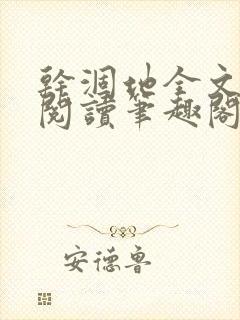 幹涸地全文
閱讀筆趣閣
安德魯